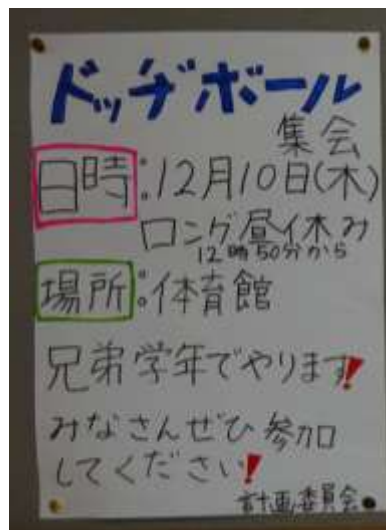 ドッヂボール
集会
日時:12月10日(木)
ロング昼休み
12時50分から
場所:体育館
兄弟学年でやります!
みなさんぜひ参加
してください!
計画委員会